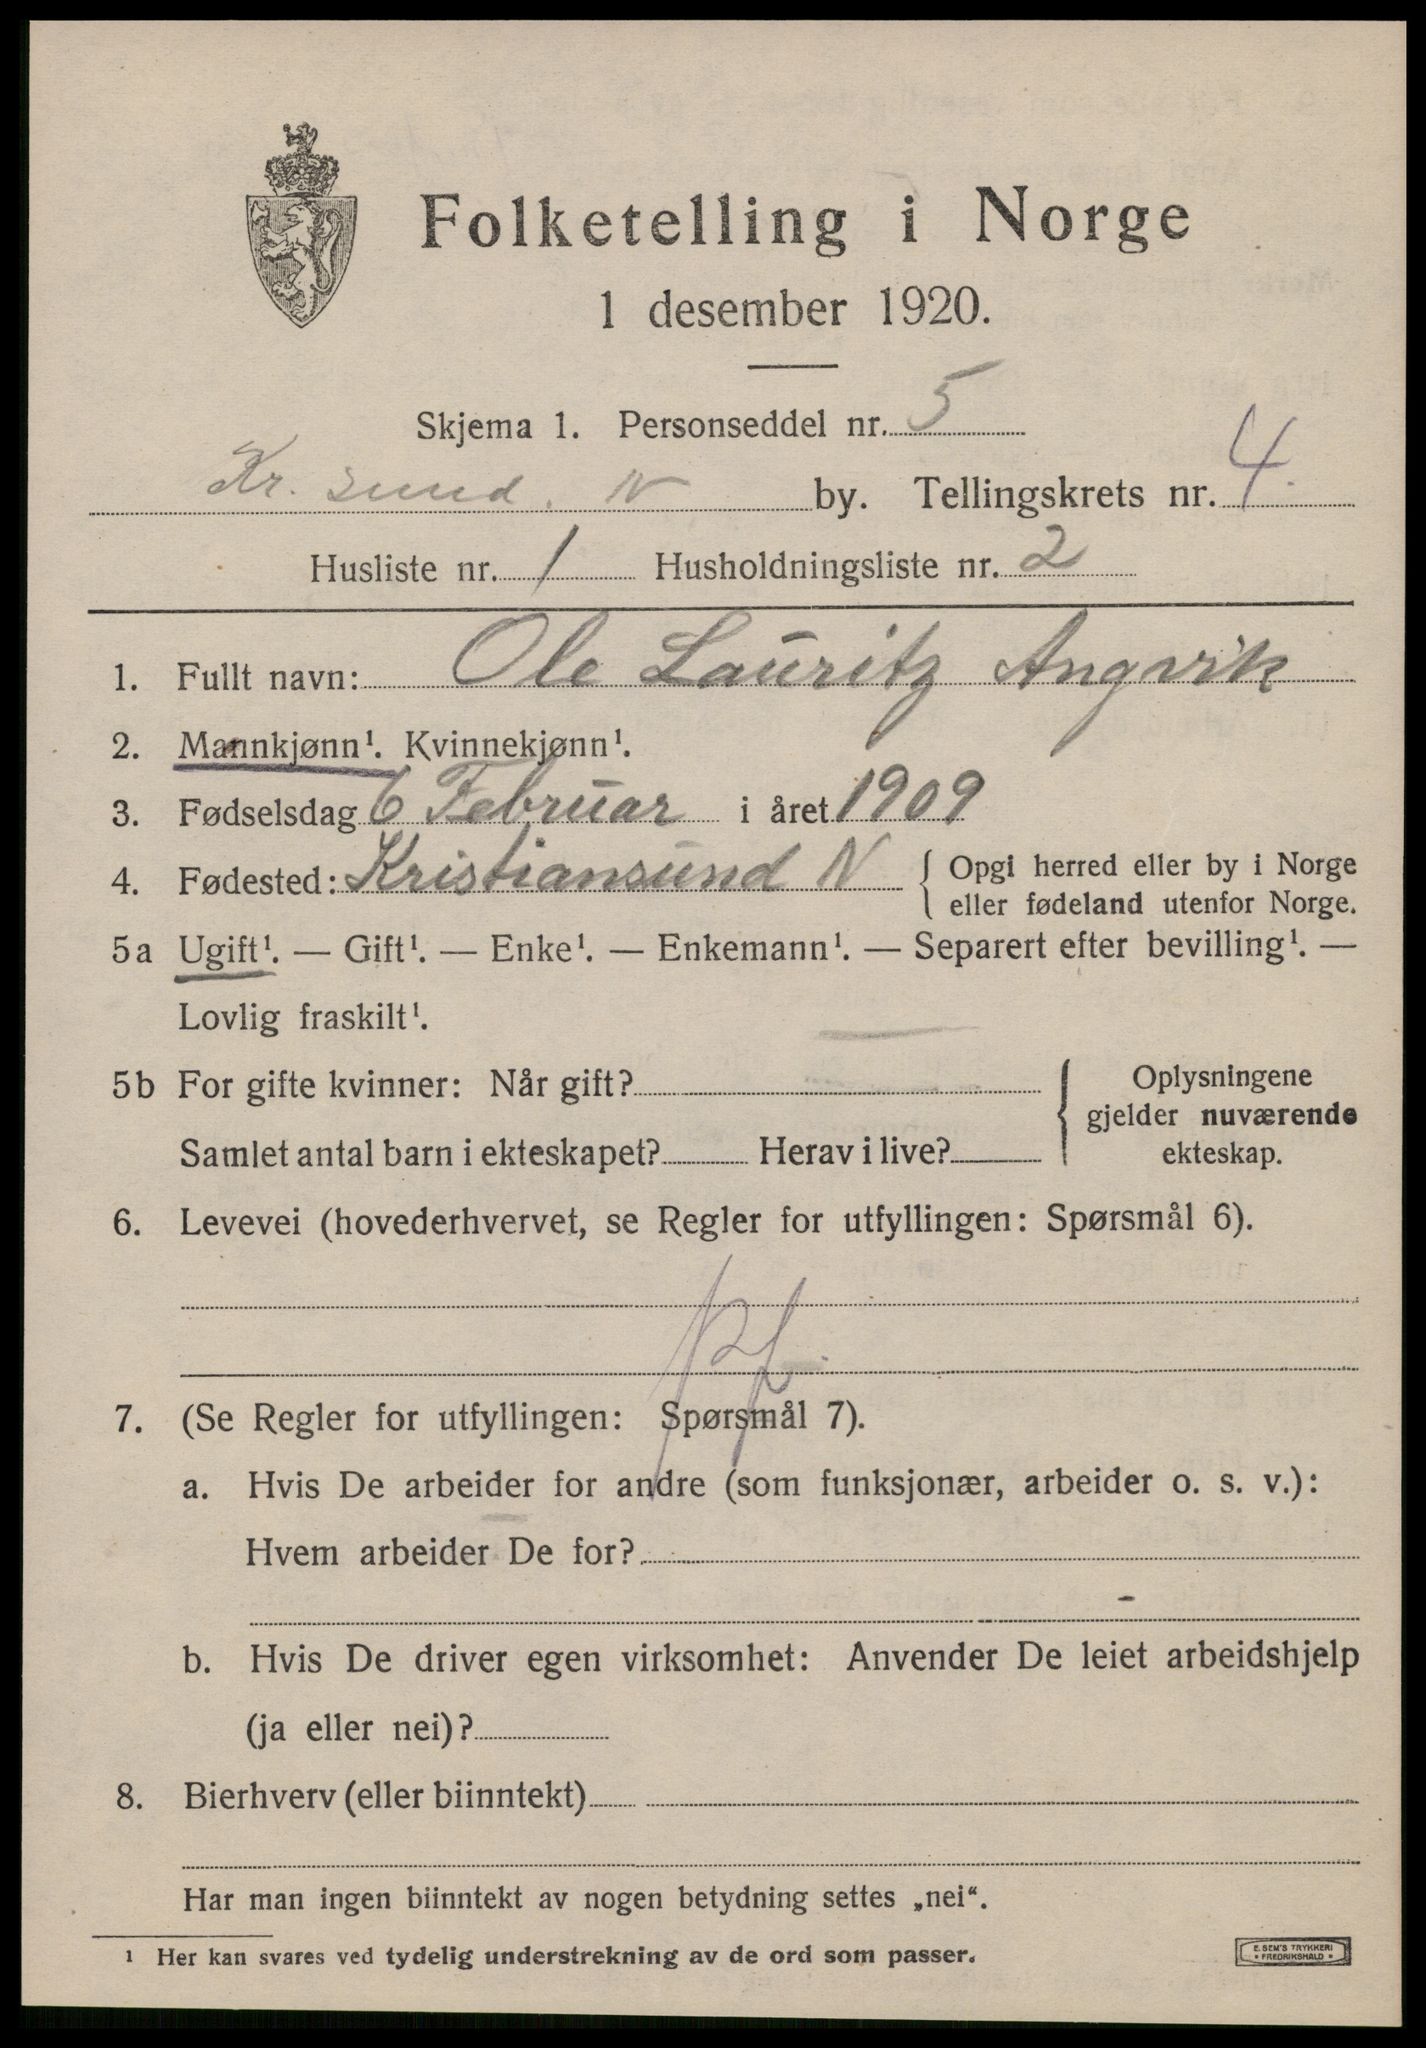 Folketelling i Norge
1 desember 1920.
Skjema 1. Personseddel nr. 5
Kr. sund. N by. Tellingskrets nr. 4.
Husliste nr. 1 Husholdningsliste nr. 2
1. Fullt navn: Ole Lauritz Angvik
2. Mannkjønn¹. Kvinnekjønn¹.
3. Fødselsdag 6 Februar i året 1909
4. Fødested: Kristiansund N { Opgi herred eller by i Norge
eller fødeland utenfor Norge.
5a Ugift¹. — Gift¹. — Enke¹. — Enkemann¹. — Separert efter bevilling¹. —
Lovlig fraskilt¹.
5b For gifte kvinner: Når gift?
Samlet antal barn i ekteskapet? Herav i live?
Oplysningene
gjelder nuværende
ekteskap.
6. Levevei (hovederhvervet, se Regler for utfyllingen: Spørsmål 6).
7. (Se Regler for utfyllingen: Spørsmål 7).
a. Hvis De arbeider for andre (som funksjonær, arbeider o. s. v.):
Hvem arbeider De for?
b. Hvis De driver egen virksomhet: Anvender De leiet arbeidshjelp
(ja eller nei)?
8. Bierhverv (eller biinntekt)
Har man ingen biinntekt av nogen betydning settes „nei“.
¹ Her kan svares ved tydelig understrekning av de ord som passer.
E. SEM'S TRYKKERI
• FREDRIKSHALD •